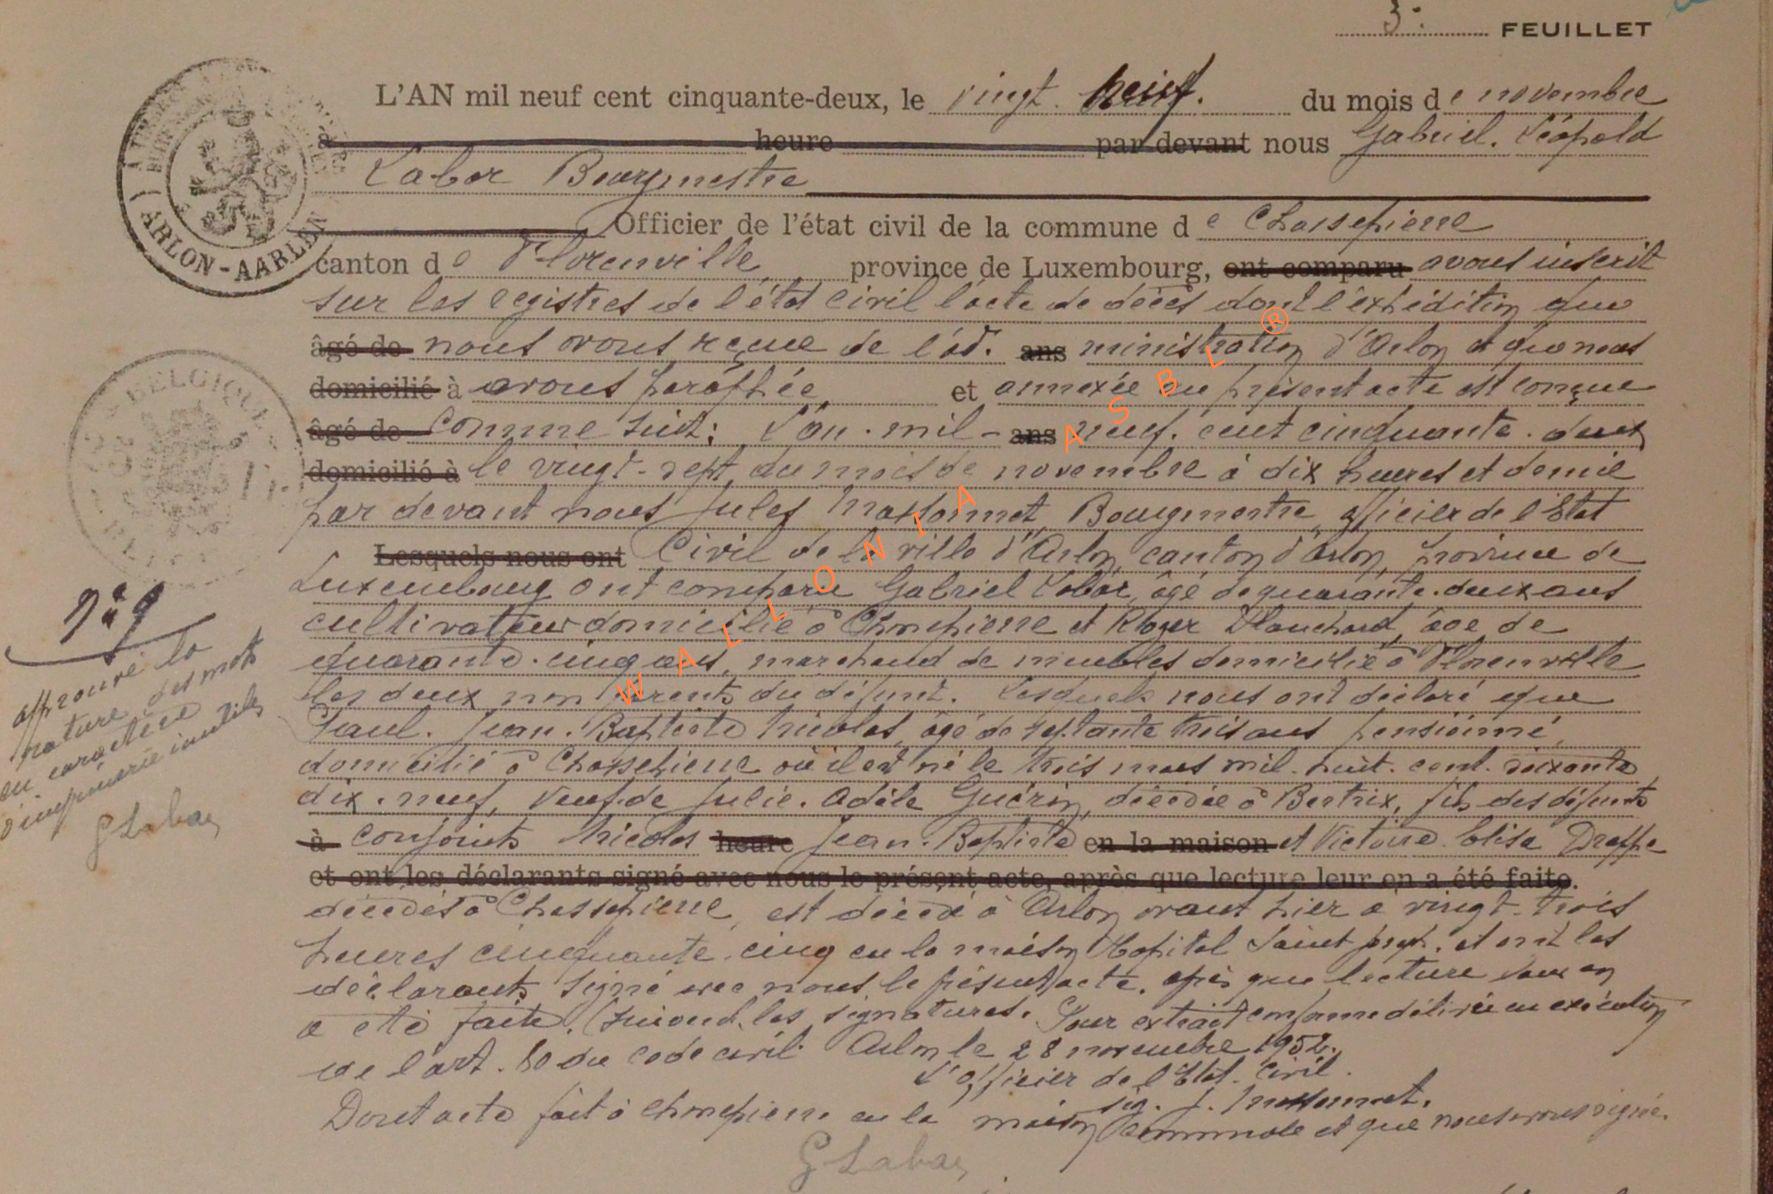 3e FEUILLET
L'AN mil neuf cent cinquante-deux, le vingt neuf. du mois de novembre
à heure par devant nous Gabriel. Léopold
Labar Bourgmestre
Officier de l'état civil de la commune de Chassepierre
canton de Florenville province de Luxembourg, ont comparu avons inscrit
sur les registres de l'état civil l'acte de décès dont l'expédition que
âgé de nous avons reçue de l'ad. ans ministration d'Arlon et que nous
domicilié à avons paraphée et annexée au présent acte est conçue
âgé de comme suit: L'an. mil- ans neuf. cent cinquante. deux
domicilié à le vingt-sept du mois de novembre à dix heures et demie
par devant nous Jules Massonnet, Bourgmestre, officier de l'Etat
Lesquels nous ont Civil de la ville d'Arlon, canton d'Arlon, province de
Luxembourg ont comparu Gabriel Labar, âgé de quarante. deux ans
cultivateur domicilié à Chassepierre et Roger Planchard, âgé de
quarante. cinq ans, marchand de meubles domicilié à Florenville
les deux non parents du défunt. Lesquels nous ont déclaré que
Paul. Jean. Baptiste Nicolas, âgé de septante trois ans pensionné,
domicilié à Chassepierre où il est né le trois mars mil. huit. cent. soixante
dix. neuf, veuf de Julie. Adèle Guérin, décédée à Bertrix, fils des défunts
à conjoints Nicolas heure Jean. Baptiste en la maison et Victoire. Elise
et ont les déclarants signé avec nous le présent acte, après que lecture leur en a été faite.
décédés à Chassepierre, est décédé à Arlon avant hier à vingt-trois
heures cinquante. cinq en la maison Hôpital Saint Joseph. et ont les
déclarants signé avec nous le présent acte. après que lecture leur en
a été faite. (suivent les signatures. Pour extrait conforme délivré en exécution
de l'art. 80 du code civil. Arlon le 28 novembre 1952.
L'officier de l'Etat. Civil.
sig. J. Massonnet.
Dont acte fait à Chassepierre en la maison communale et que nous avons signé.
G Labar
n° 9
approuvé la
rature des mots
en caractère
d'imprimerie inutiles
G Labar
ARLON-AARLEN
BELGIQUE
WALLONIA ASBL ®